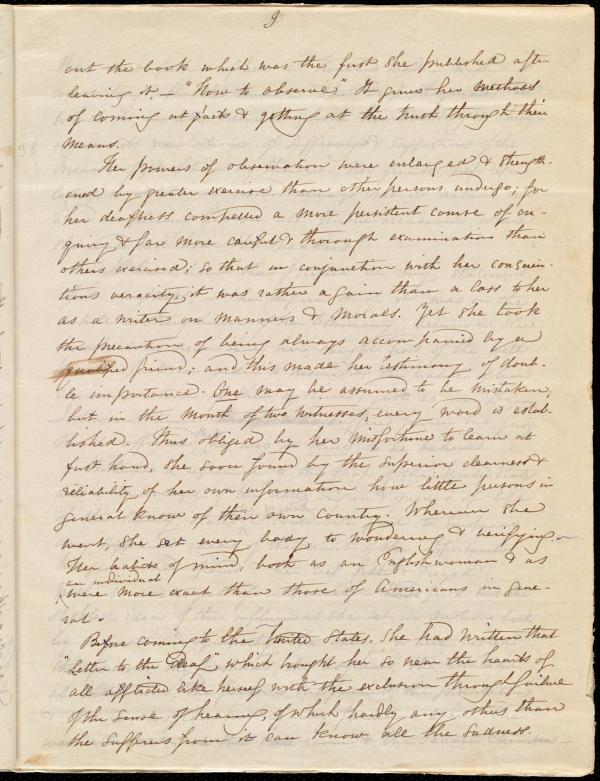 9
out the book which was the first she published after
leaving it – "How to observe." It gives her methods
of coming at facts & getting at the truth through their
means.
Her powers of observation were enlarged & strength-
ened by greater exercise than other persons undergo; for
her deafness compelled a more persistent course of en-
quiry & far more careful & thorough examination than
others exercised; so that in conjunction with her conscien-
tious veracity, it was rather a gain than a loss to her
as a writer on manners & morals. Yet she took
the precaution of being always accompanied by a
qualified friend; and this made her testimony of doub-
le importance. One may be assumed to be mistaken,
but in the mouth of two witnesses, every word is estab-
lished. Thus obliged by her misfortune to learn at
first hand, she soon found by the superior clearness &
reliability of her own information how little persons in
general know of their own country. Wherever she
went, she set every body to wondering & verifying.
Her habits of mind, both as an Englishwoman & as
an individual
were more exact than those of Americans in gene-
ral.
Before coming to the United States, she had written that
"Letter to the Deaf" which brought her so near the hearts of
all afflicted like herself with the exclusion through failure
of the sense of hearing, of which hardly any others than
the sufferers from it can know all the sadness.